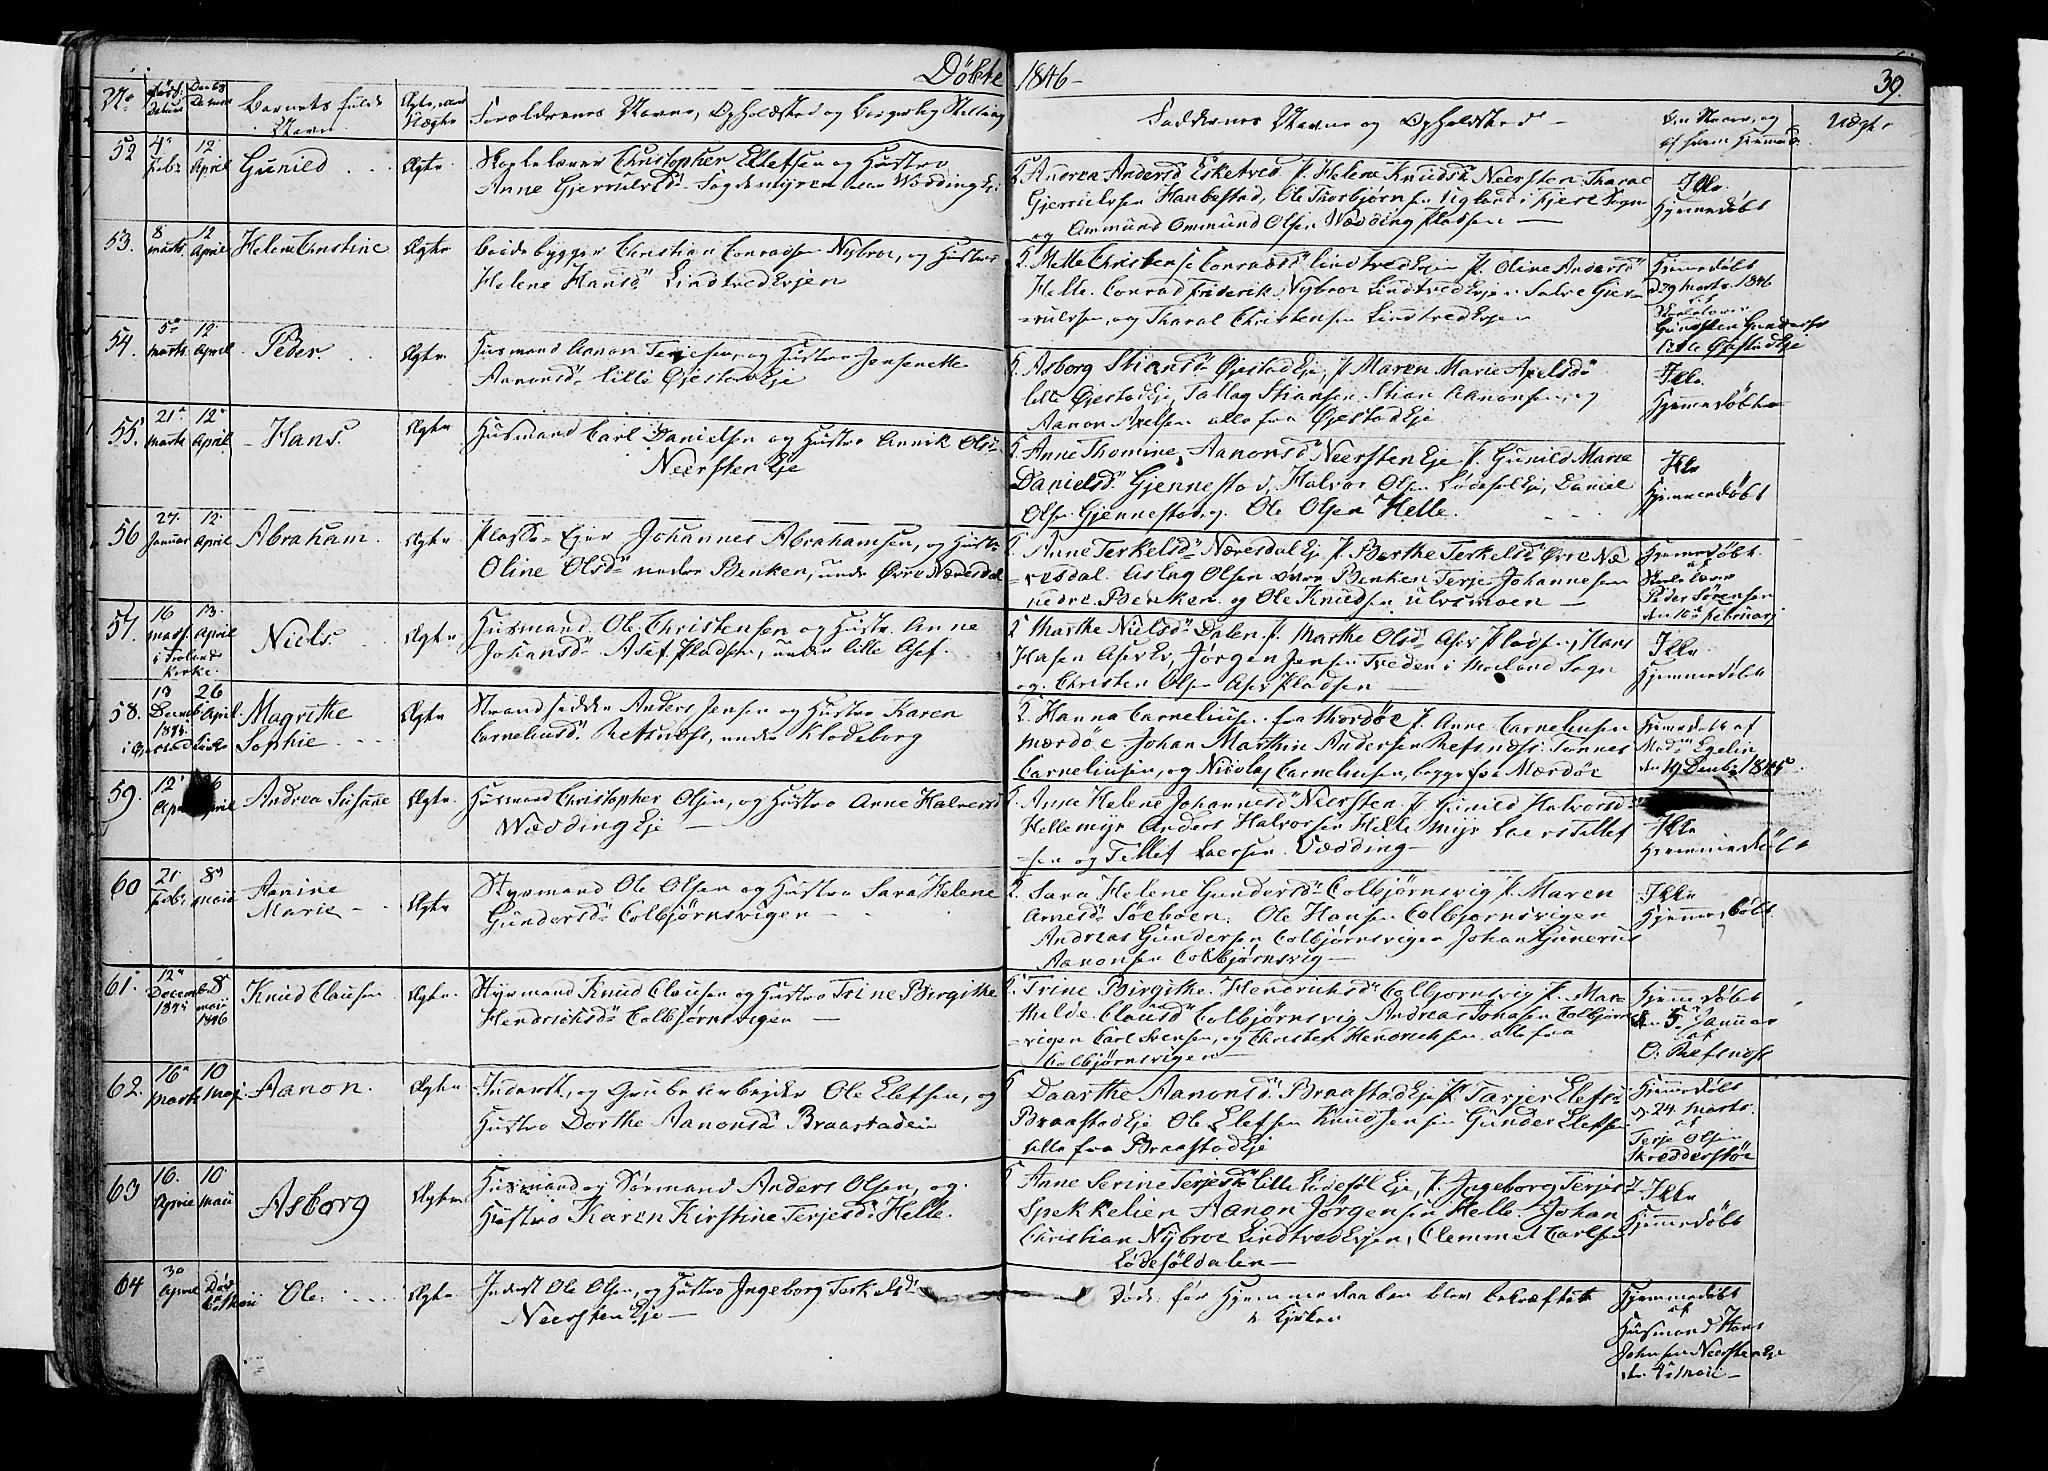 Döbte 1846 39.
No Daabs Datum Barnets fulde Navn Ægte, eller Uægte Foreldrenes Navne, Opholdsted og Borgerlig Stilling Faddernes Navne og Opholdsted
52 4de Febr 12 April Gunild Ægte Skolelærer Christopher Ellefsen og Hustro
Anne Gjerrulvsd
Andrea Andersd Esketved p. Helene Knudsd Neersten Tharal
Gjerrulvsen Haabestad, Ole Thorbjørnsen Ugland i Fjere Sogn
og Ammund Ommund Olsen Wædding Pladsen
Ikke
Hjemmedöbt
53. 8 Marts 12 April Helene Christine Ægte Christian Conradsen Nybroe, og Hustroe
Helene Hansd Lindtved Eijen
Conradsd Lindtved Eijen p. Oline Andersd
Helle. Conrad Friderik Nybroe Lindtved Eje Salve Gjer-
rulvsen, og Tharal Christensen Lindtved Eijen
Hjemmedöbt
d 29 Marts 1846
af
Skolelærer
Gundersen
lille Øjestad Eje
54. 5te Marts 12 April Peder Ægte Husmand Aanon Terjesen, og Hustro Jensenette
Aanonsd lille Øjestad Eje
Asborg Stiansd Øjestad Eje, p. Maren Marie Axelsd
lille Øjestad Ej, Tallag Stiansen, Stian Aanonsen, og
Aanon Axelsen alle fra Øjestad Eje
Ikke
Hjemmedöbt
55. 21de Marts 12te April Hans. Ægte Husmand Carl Danielsen og Hustro Annik Olsd
Neersten Eje
Anne Thomine Aanonsd Neersten Eje p. Gunild Marie
Danielsd Gjennestad, Halvor Olsen Lødesøl Eje, Daniel
Olsen Gjennestad og Ole Olsen Helle.
Ikke
Hjemmedöbt
56 27. Januar 12. April Abraham. Ægte Plads-Ejer Johannes Abrahamsen, og Hustro
Oline Olsd nedre Benken, under Øvre Næresdal
Anne Terkelsd Næresdal Eje p. Berthe Terkelsd Øvre Næ
resdal. Aslag Olsen øvre Benken Terje Johannesen
nedre Benken. og Ole Knudsen Ulvsmoen
Hjemmedöbt
af
Skolelærer
Peder Sørensen
den 10de Februari
57. 16 Marts 13. April i Froland Kirke. Niels. Ægte Husmand Ole Christensen og Hustro Anne
Johansd Asef Pladsen, under lille Asef.
Marthe Nielsd Dalen p. Marthe Olsd Asev Pladsen, Hans
Jørgen Jensen Treden i Moeland Sogn
og Christen Olsen Asev Pladsen
Ikke
Hjemmedöbt
58. 13 Decemb 1845. 26 April Magrithe
Sophie Ægte Strandsidder Anders Jensen og Hustro Karen
Corneliusd Refsnæss, under Klodeborg
Hanna Corneliusen fra Mærdöe p. Anne Corneliusen
Mærdöe Johan Marthin Andersen Refsnæss Tønnes
Corneliusen, og Nicolaj Corneliusen, begge fra Mærdöe
Hjemmedöbt af
Egelin
den 19 Decbr 1845.
59. 12te April 26 April Andrea Susanne Ægte. Husmand Christopher Olsen, og Hustro Anne Halvorsd
Wædding Eje
Anne Helene Johannesd Neersten, p. Gunild Halvorsd
Hellemyr Anders Halvorsen Hellemyr Laers Tellef
sen og Tellef Laersen. Vædding
Ikke
Hjemmedöbt
60 21 Febr 8de Maii Aanine
Marie Ægte Styrmand Ole Olsen og Hustro Sara Helene
Gundersd Colbjørnsvigen
Sara Helene Gundersd Colbjørnsvig p. Maren
Arnesd Söeboen. Ole Hansen Colbjørnsvigen
Andreas Gundersen Colbjørnsvigen Johan Gunerius
Aanonsen Colbjørnsvig
Ikke
Hjemmedöbt.
61. 12te Decembr 1845 8de Maii 1846 Knud Clausen Ægte. Styrmand Knud Clausen og Hustro Trine Birgithe
Hendriksd Colbjørnsvigen
Trine Birgithe. Hendriksd Colbjørnsvig p. Mat-
hilde. Clausd Colbjørnsvig Andreas Johasen Colbjørns
vigen Carl Svensen, og Christen Hendriksen alle fra
Colbjørnsvigen
Hjemmedöbt
den 5te Januar
af
O: Refsnæss
62. 16de Marts 10 Maj Aanon. Ægte Inderst, og Grubearbejder Ole Elefsen, og
Hustro Dorthe Aanonsd Braastadeie
Daarthe Aanonsd Braastad Eje p. Tarjer Elefs
Braastad Eje Ole Elefsen Knudsen Gunder Elefsen
alle fra Braastad Eje
Hjemmedöbt
d. 24 Marts.
af
Terje Olsen
Skredderstöe
63 16. Aprie 10. Maii Asborg Ægte Husmand og Sörmand Anders Olsen, og
Hustro Karen Kirstine Terjesd Helle.
Anne Serine Terjesd lille Lødesøl Eje, p. Ingeborg Terjesd
Spekkelien Aanon Jørgensen Helle. Johan
Christian Nybroe Lindtved Eijen, Clemmet Carlsen
Lödesöldalen
Ikke
Hjemmedöbt
64 30 Aprie Ole. Ægte Inderst Ole Olsen, og Hustro Ingeborg Terkelsd
Neersten Eje
Döde för Hjemmedaaben blev bekræftet
i Kjrken
Hjemmedöbt
af
Husmand Hans
Johnsen Neersten Eje
den 4de Maii